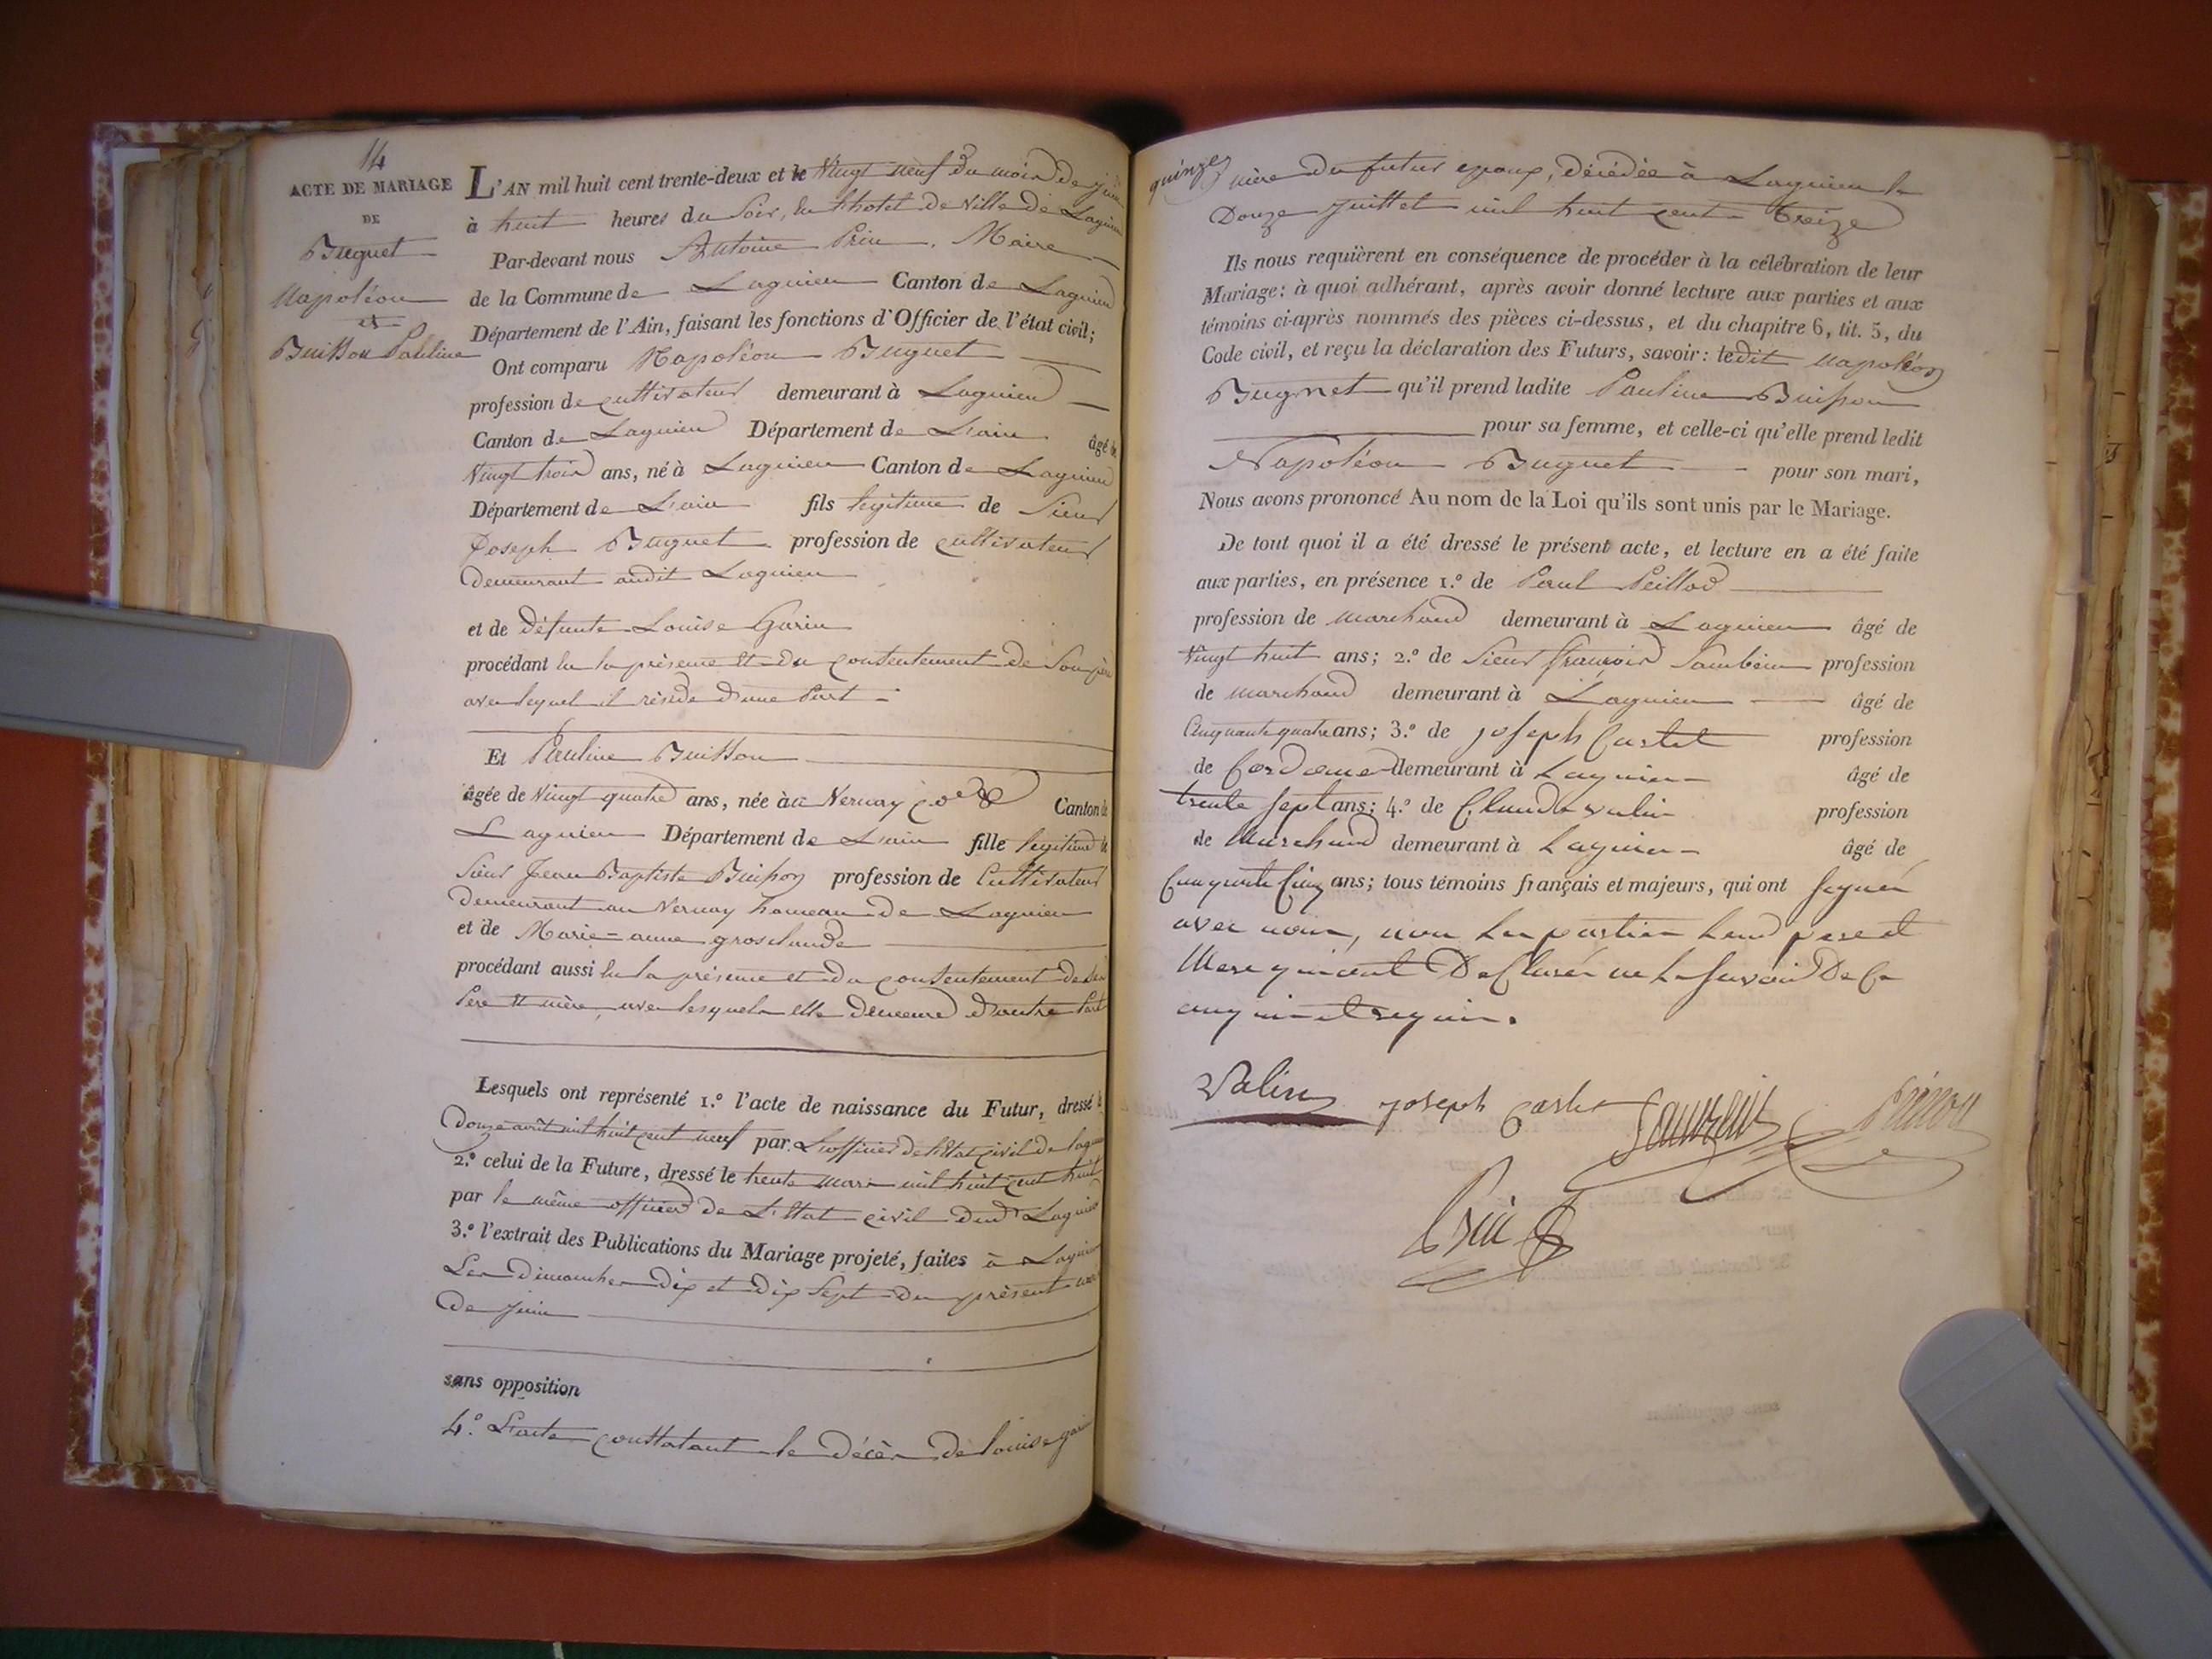 14
ACTE DE MARIAGE
DE
Buguet
Napoléon
et
Buisson Pauline
L'AN mil huit cent trente-deux et le Vingt neuf du mois de juin
à huit heures du Soir, en l'hotel de ville de Lagnieu
Par-devant nous Antoine Prin, Maire
de la Commune de Lagnieu Canton de Lagnieu
Département de l'Ain, faisant les fonctions d'Officier de l'état civil;
Ont comparu Napoléon Buguet
profession de cultivateur demeurant à Lagnieu
Canton de Lagnieu Département de L'ain âgé de
Vingt trois ans, né à Lagnieu Canton de Lagnieu
Département de L'ain fils légitime de Sieur
Joseph Buguet profession de cultivateur
demeurant audit Lagnieu
et de défunte Louise Garin
procédant en la présence et du consentement de Son père
avec lequel il réside d'une Part
Et Pauline Buisson
âgée de Vingt quatre ans, née au Vernay Canton de
Lagnieu Département de L'ain fille légitime de
Sieur Jean Baptiste Buisson profession de Cultivateur
demeurant au Vernay hameau de Lagnieu
et de Marie=anne groselaude
procédant aussi en la présence et du consentement de ses
Père et mère, avec lesquels elle demeure d'autre Part
Lesquels ont représenté 1.º l'acte de naissance du Futur, dressé le
douze août mil huit cent neuf par L'officier de l'état civil de lagnieu
2.º celui de la Future, dressé le trente mars mil huit cent huit
par le même officier de L'état civil dud Lagnieu
3.º l'extrait des Publications du Mariage projeté, faites à Lagnieu
Les Dimanches dix et dix Sept du présent mois
de juin
sans opposition
4.º L'acte constatant le décès de louise garin
quinze
mère du futur epoux, décédée à Lagnieu le
Douze juillet mil huit cent treize
Ils nous requièrent en conséquence de procéder à la célébration de leur
Mariage: à quoi adhérant, après avoir donné lecture aux parties et aux
témoins ci-après nommés des pièces ci-dessus, et du chapitre 6, tit. 5, du
Code civil, et reçu la déclaration des Futurs, savoir: ledit Napoléon
Bugnet qu'il prend ladite Pauline Buisson
pour sa femme, et celle-ci qu'elle prend ledit
Napoléon Buguet pour son mari,
Nous avons prononcé Au nom de la Loi qu'ils sont unis par le Mariage.
De tout quoi il a été dressé le présent acte, et lecture en a été faite
aux parties, en présence 1.º de Paul Peillod
profession de marchand demeurant à Lagnieu âgé de
Vingt huit ans; 2.º de Sieur françois profession
de marchand demeurant à Lagnieu âgé de
Cinquante quatre ans; 3.º de joseph Castet profession
de demeurant à Lagnieu âgé de
trente sept ans; 4.º de Claude valin profession
de Marchand demeurant à Lagnieu âgé de
Cinquante Cinq ans; tous témoins français et majeurs, qui ont signés
avec nous, non les parties leurs pere et
Mere qui ont Déclarés ne le savoir De Ce
enquis et requis.
Valin joseph castet
Prin